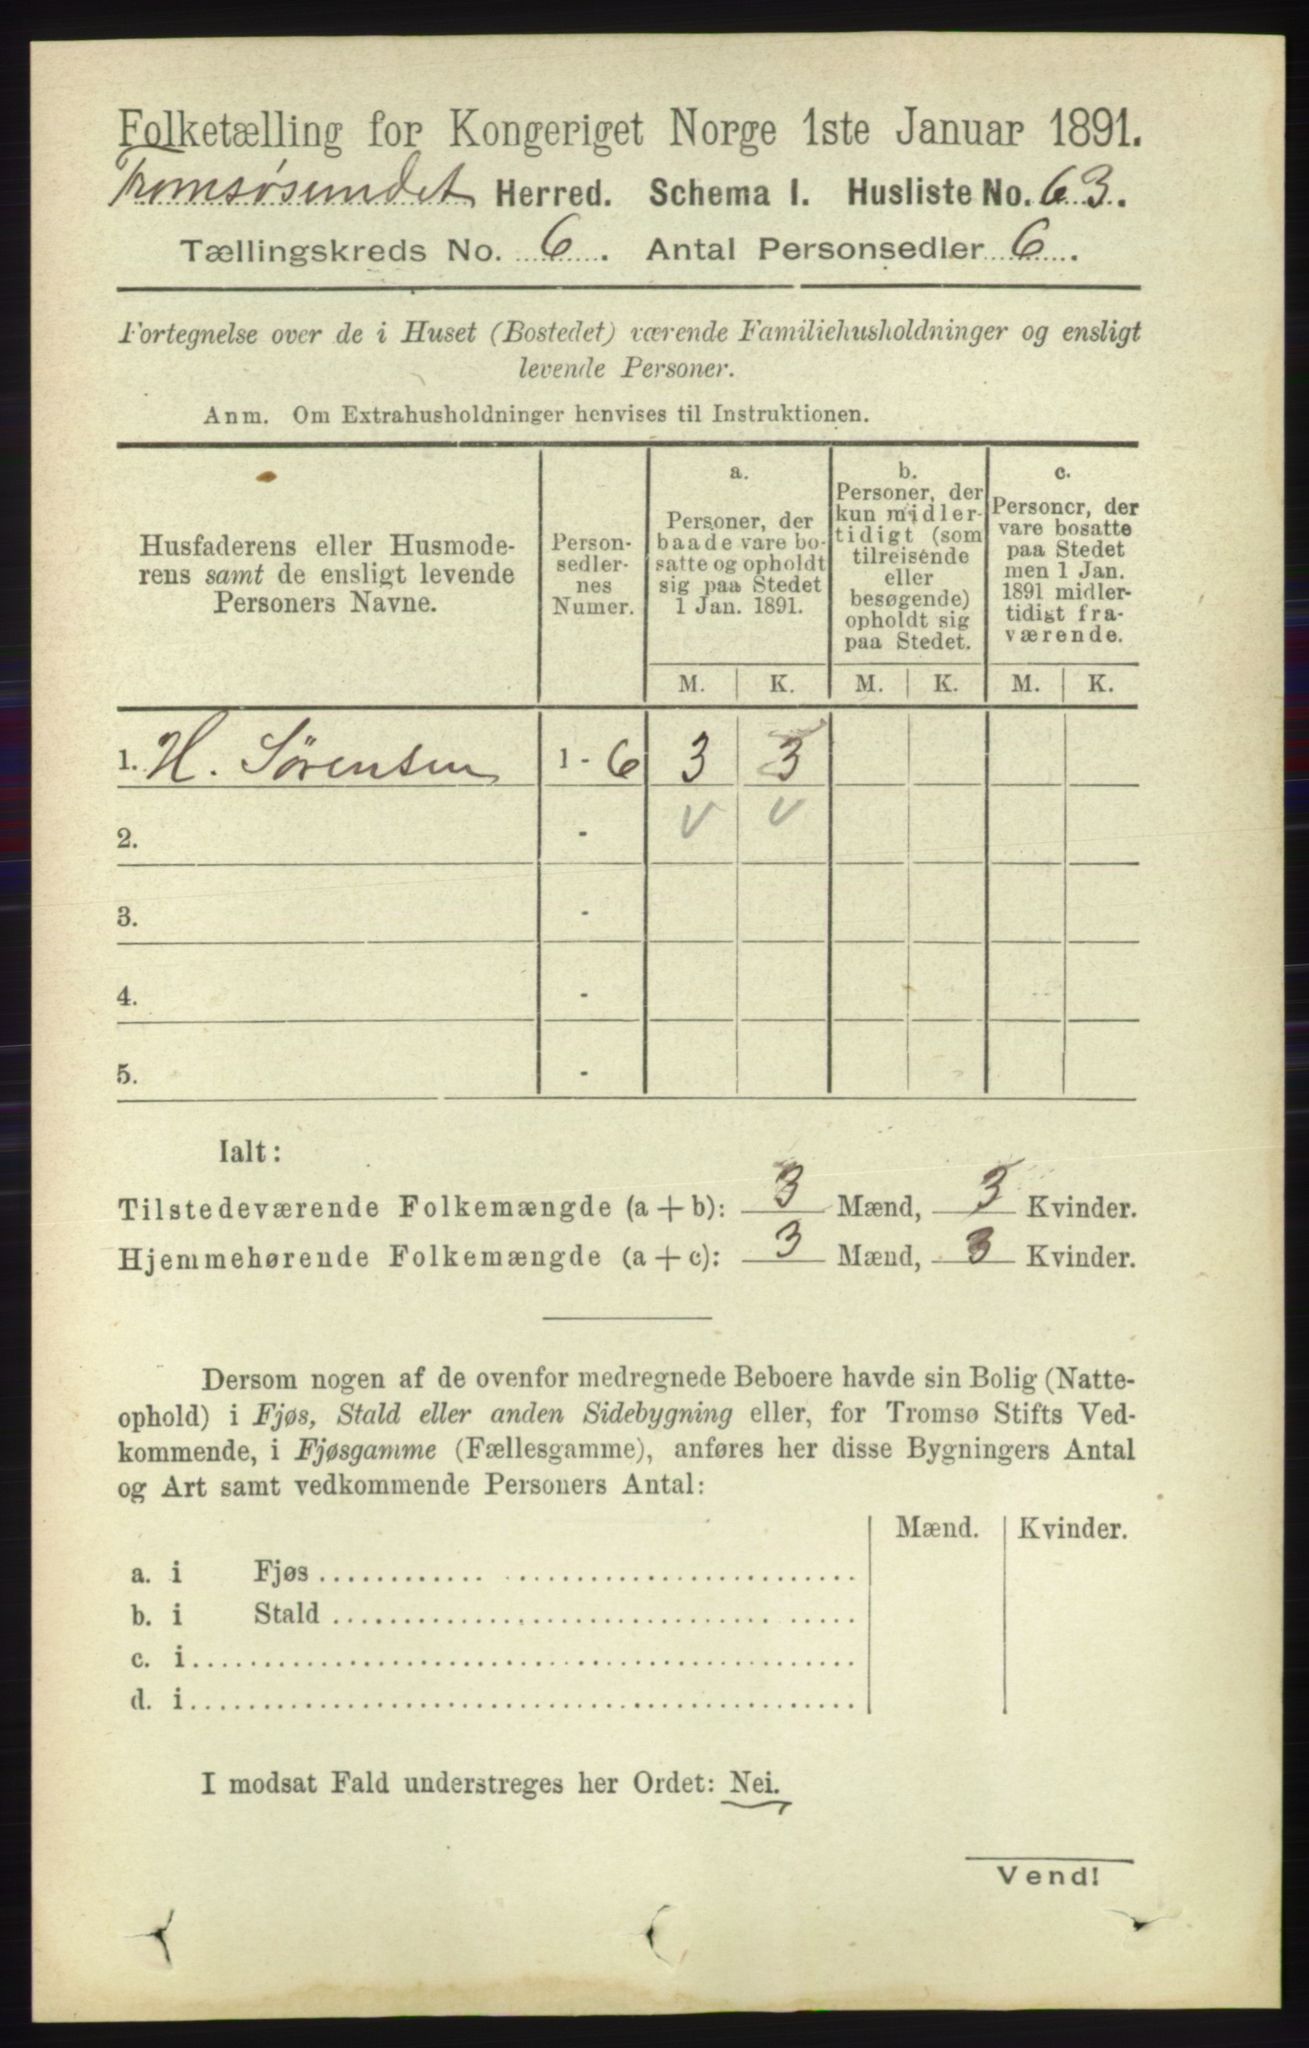 Folketælling for Kongeriget Norge 1ste Januar 1891.
Tromsøsundet Herred. Schema I. Husliste No. 63.
Tællingskreds No. 6. Antal Personsedler 6.
Fortegnelse over de i Huset (Bostedet) værende Familiehusholdninger og ensligt
levende Personer.
Anm. Om Extrahusholdninger henvises til Instruktionen.
Husfaderens eller Husmode-
rens samt de ensligt levende
Personers Navne.
Person-
sedler-
nes
Numer.
a.
Personer, der
baade vare bo-
satte og opholdt
sig paa Stedet
1 Jan. 1891.
b.
Personer, der
kun midler-
tidigt (som
tilreisende
eller
besøgende)
opholdt sig
paa Stedet.
c.
Personer, der
vare bosatte
paa Stedet
men 1 Jan.
1891 midler-
tidigt fra-
værende.
M. K. M. K. M. K.
1. H. Sørensen 1 - 6 3 3
2. - v v
3. -
4. -
5. -
Ialt:
Tilstedeværende Folkemængde (a + b): 3 Mænd, 3 Kvinder.
Hjemmehørende Folkemængde (a + c): 3 Mænd, 3 Kvinder.
Dersom nogen af de ovenfor medregnede Beboere havde sin Bolig (Natte-
ophold) i Fjøs, Stald eller anden Sidebygning eller, for Tromsø Stifts Ved-
kommende, i Fjøsgamme (Fællesgamme), anføres her disse Bygningers Antal
og Art samt vedkommende Personers Antal:
Mænd. Kvinder.
a. i Fjøs
b. i Stald
c. i
d. i
I modsat Fald understreges her Ordet: Nei.
Vend!